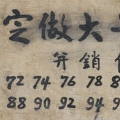 定做大
并銷
72 74 76 78
88 90 92 94